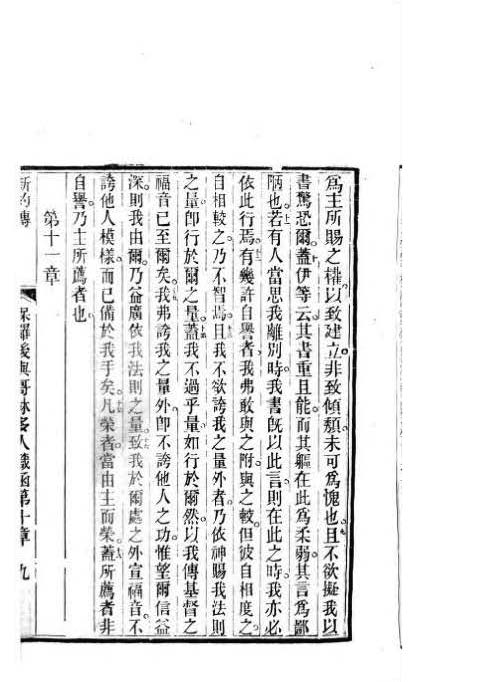 爲主所賜之權以致建立非致傾頽未可爲愧也且不欲擬我以
書驚恐爾蓋伊等云其書重且能而其軀在此爲柔弱其言爲鄙
陋也若有人當思我離別時我書旣以此言則在此之時我亦必
依此行焉有幾許自譽者我弗敢與之附與之較但彼自相度之
自相較之乃不智焉且我不欲誇我之量外者乃依神賜我法則
之量卽行於爾之量蓋我不過乎量如行於爾然以我傳基督之
福音已至爾矣我弗誇我之量外卽不誇他人之功惟望爾信益
深則我由爾乃益廣依我法則之量致我於爾處之外宣福音不
誇他人模樣而已備於我手矣凡榮者當由主而榮蓋所薦者非
自譽乃主所薦者也
第十一章
新約傳
保羅後與哥林多人書函第十章 九